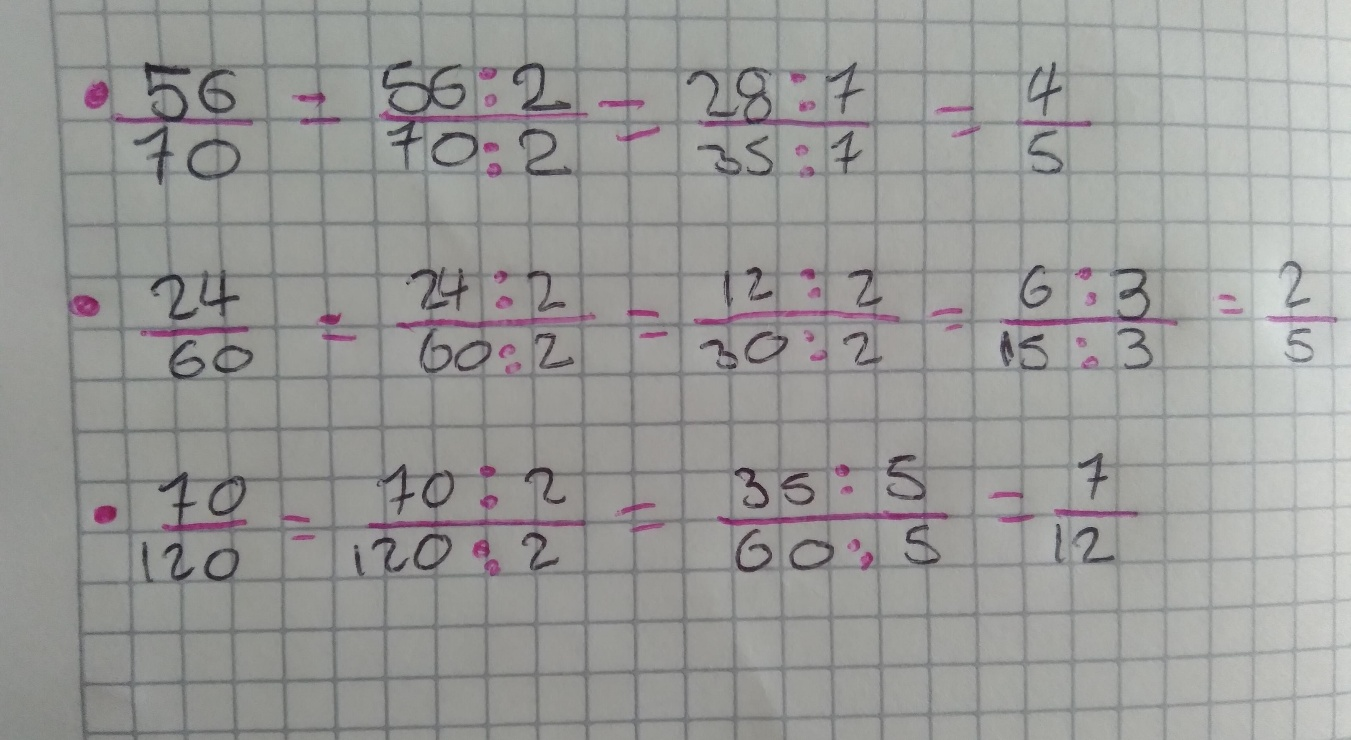 • 56/70 = 56:2/70:2 = 28:7/35:7 = 4/5
• 24/60 = 24:2/60:2 = 12:2/30:2 = 6:3/15:3 = 2/5
• 70/120 = 70:2/120:2 = 35:5/60:5 = 7/12